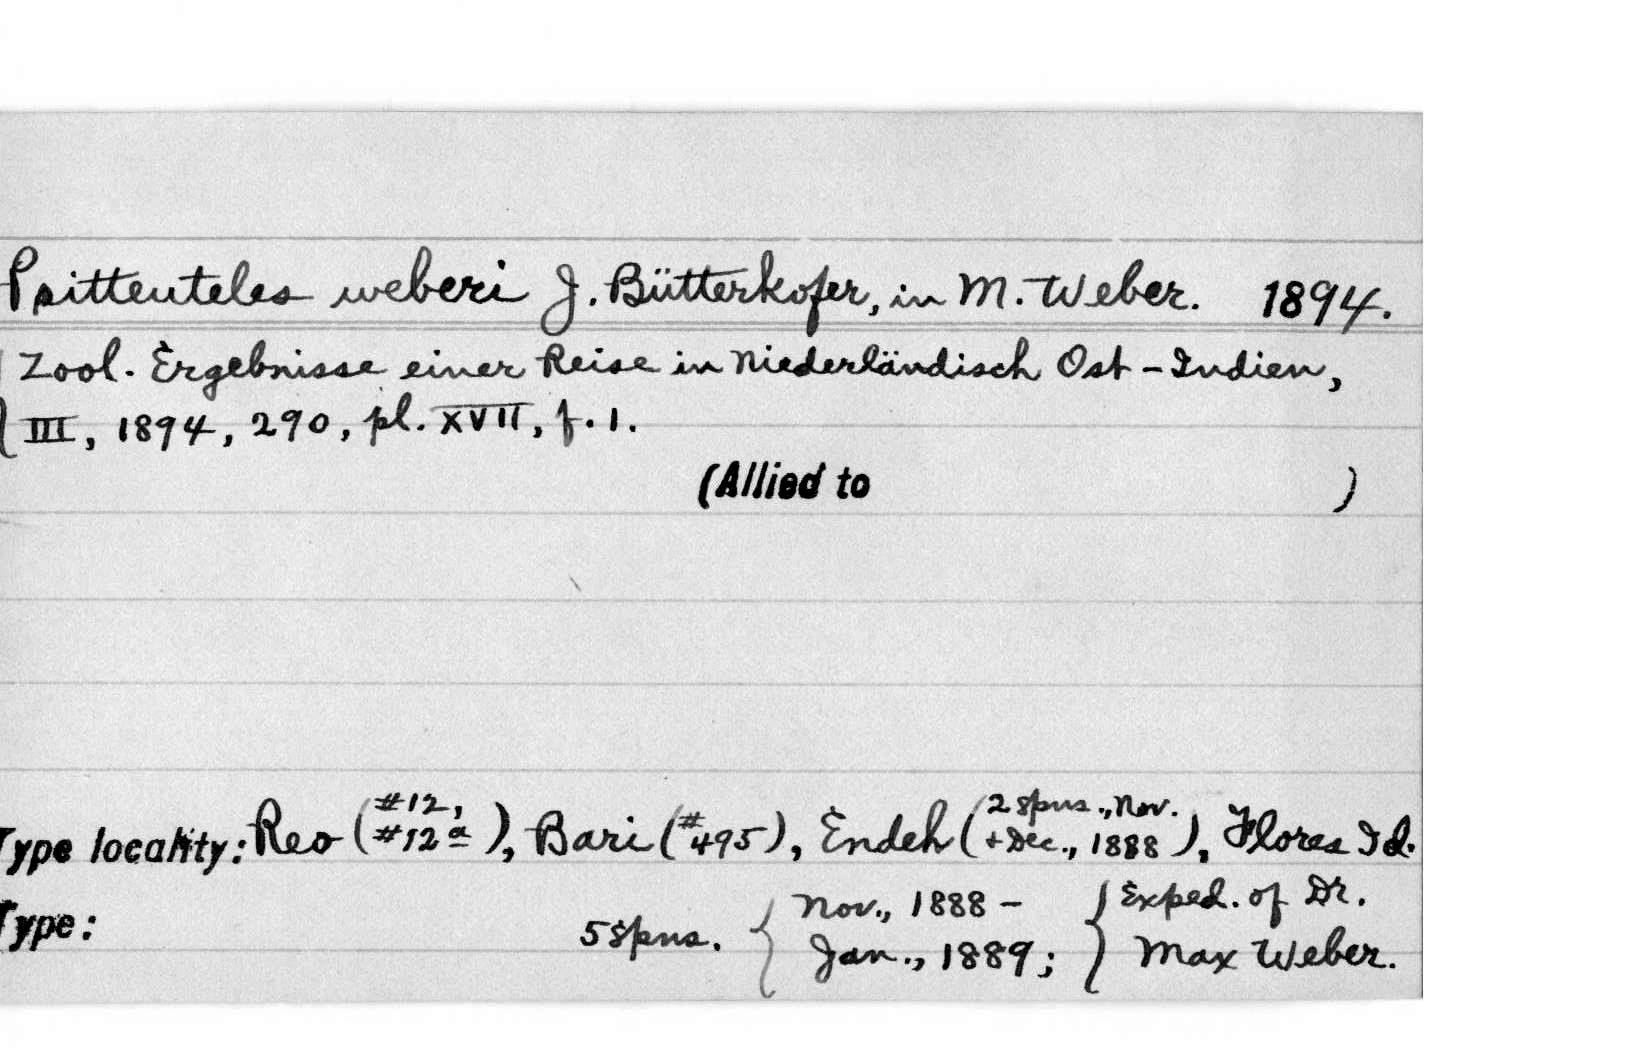 Psitteuteles weberi J. Bütterkofer, in M. Weber. 1894.
Zool. Ergebnisse einer Reise in Niederländisch Ost-Indien,
III, 1894, 290, pl. XVII, f. 1.
(Allied to )
Type locality: Reo (#12, #12a), Bari (#495), Endeh (2 spns., Nov. + Dec., 1888), Flores Id.
Type: 5 spns. { Nov., 1888 - Jan., 1889; { Exped. of Dr. Max Weber.